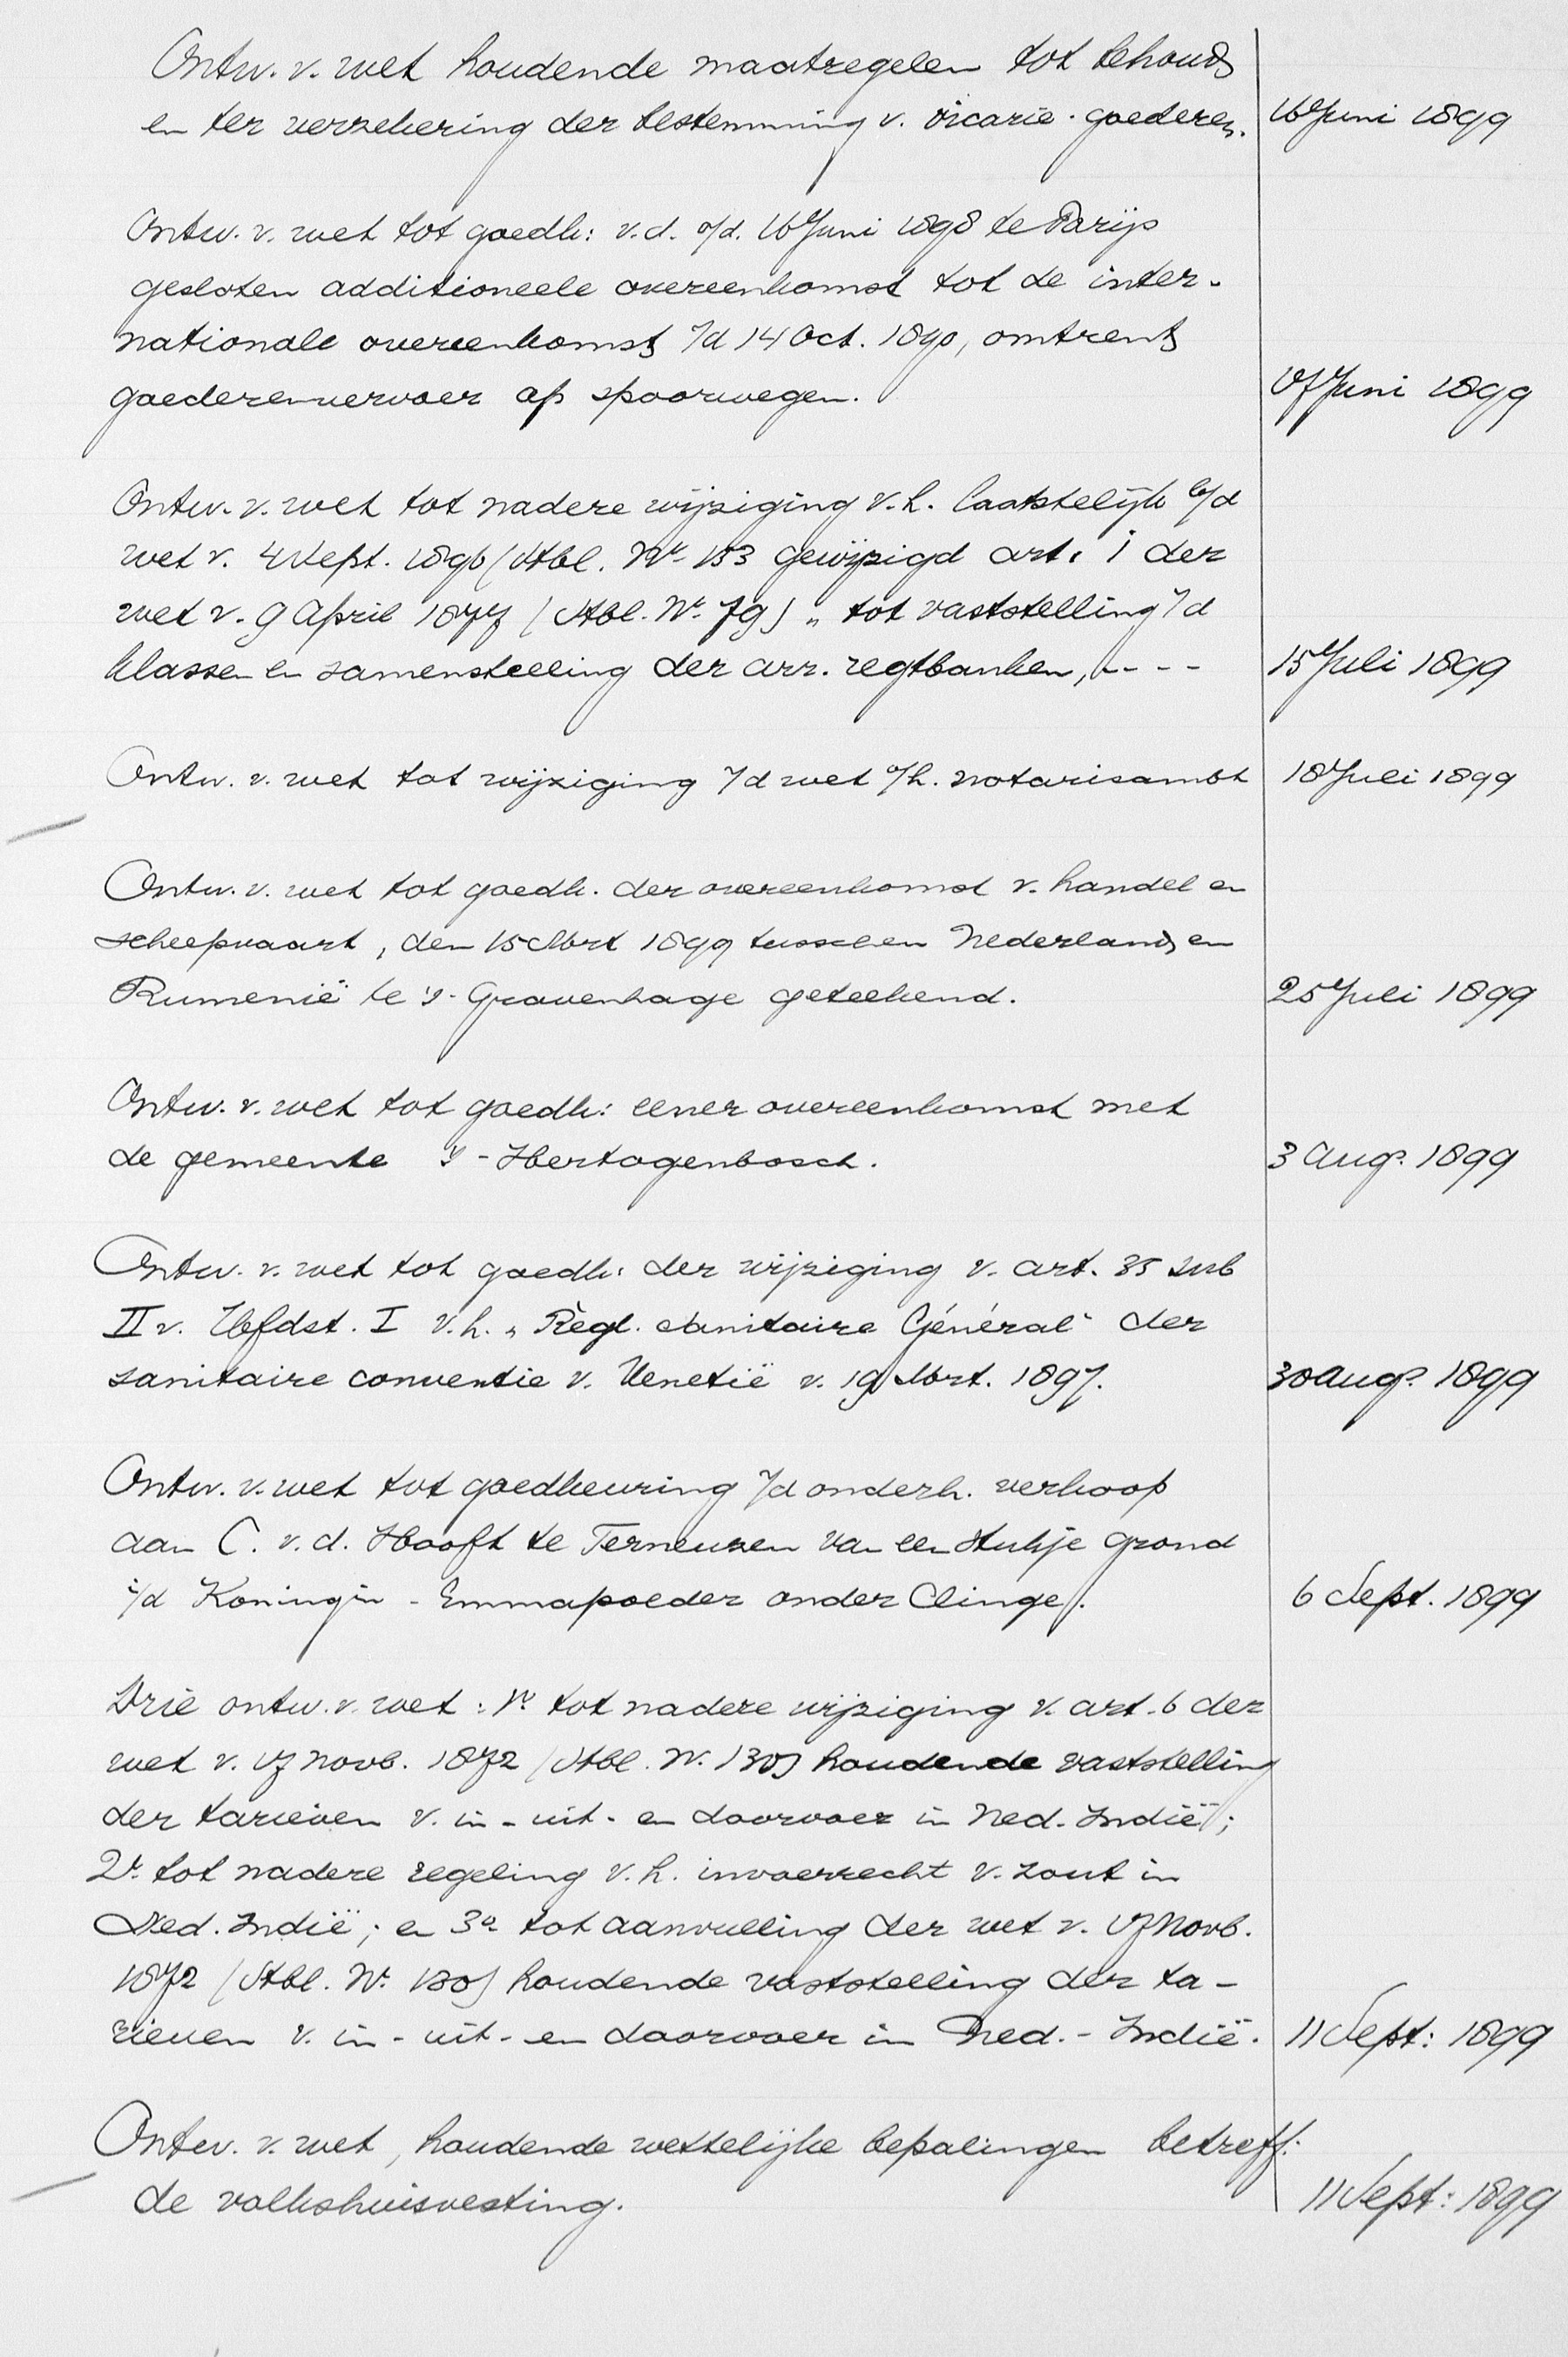 Ontw. v. wet houdende maatregelen tot behoud
en ter verzekering der bestemming v. vicarie-goederen. 16 Juni 1899
Ontw. v. wet tot goedk: v.d. o/d. 16 Juni 1898 te Parijs
gesloten additioneele overeenkomst tot de inter-
nationale overeenkomst v/d 14 Oct. 1890, omtrent
goederenvervoer op spoorwegen. 17 Juni 1899
Ontw. v. wet tot nadere wijziging v.h. laatstelijk b/d
wet v. 4 Sept. 1896 (Stbl. Nr. 153 gewijzigd art. 1 der
wet v. 9 April 1877 (Stbl. Nr. 79) „ tot vaststelling v/d
klassen en samenstelling der arr. regtbanken, - - - - 15 Juli 1899
Ontw. v. wet tot wijziging v/d wet o/h. notarisambt 18 Juli 1899
Ontw. v. wet tot goedk. der overeenkomst v. handel en
scheepvaart, den 15 Mrt 1899 tusschen Nederland en
Rumenië te 's-Gravenhage geteekend. 25 Juli 1899
Ontw. v. wet tot goedk: eener overeenkomst met
de gemeente 's-Hertogenbosch. 3 Aug. 1899
Ontw. v. wet tot goedk: der wijziging v. art. 35 sub
II v. Hfdst. I v.h. „Règl. Sanitaire Général" der
sanitaire conventie v. Venetië v. 19 Mrt. 1897. 30 Aug. 1899
Ontw. v. wet tot goedkeuring v/d onderh. verkoop
aan C. v. d. Hooft te Terneuzen van een stukje grond
i/d Koningin-Emmapolder onder Clinge. 6 Sept. 1899
Drie ontw. v. wet: 1º tot nadere wijziging v. art. 6 der
wet v. 17 Novb. 1872 (Stbl. Nr. 130) houdende vaststelling
der tarieven v. in- uit- en doorvoer in Ned. Indië;
2º tot nadere regeling v.h. invoerrecht v. zout in
Ned. Indië; en 3º tot aanvulling der wet v. 17 Novb.
1872 (Stbl. Nr. 130) houdende vaststelling der ta-
rieven v. in- uit- en doorvoer in Ned.-Indië. 11 Sept: 1899
Ontw. v. wet, houdende wettelijke bepalingen betreff:
de volkshuisvesting. 11 Sept: 1899